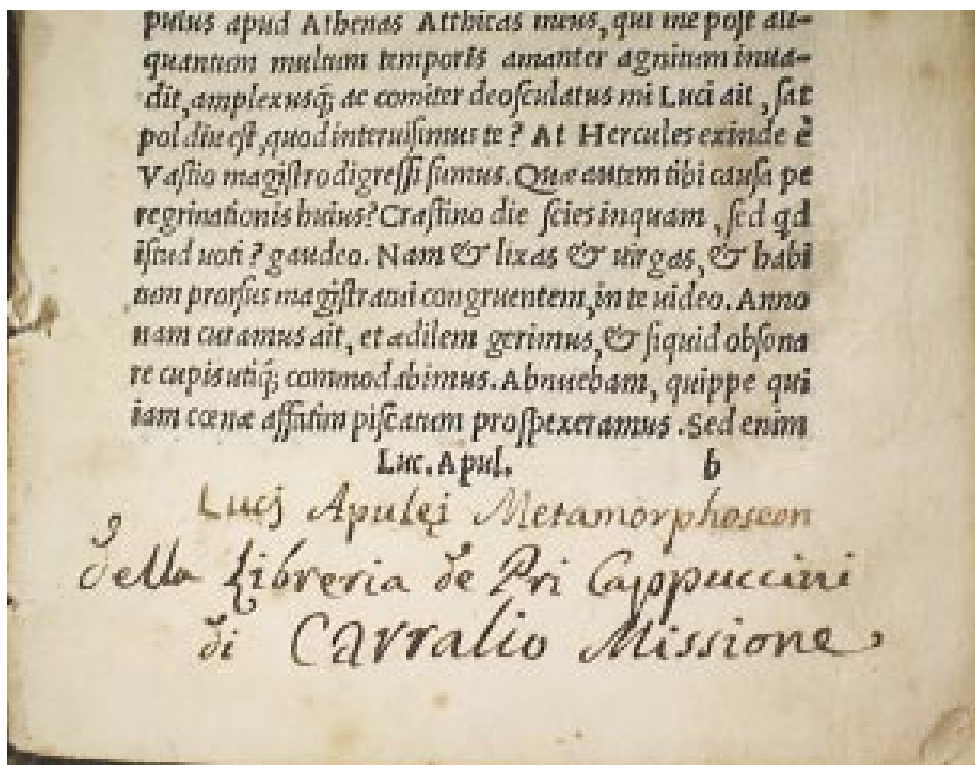 pulus apud Athenas Atthicas meus, qui me post ali-
quantum multum temporis amanter agnitum inua-
dit, amplexusq; ac comiter deosculatus mi Luci ait, sat
pol diu est, quod interuisimus te? At Hercules exinde ẽ
Vastio magistro digressi sumus. Quæ autem tibi causa pe
regrinationis huius? Crastino die scies inquam, sed qd
istud uoti? gaudeo. Nam & lixas & uirgas, & habi
tum prorsus magistraui congruentem, in te uideo. Anno
nam curamus ait, et ædilem gerimus, & siquid obsona
re cupis utiq; commodabimus. Abnuebam, quippe qui
iam cœnæ affatim piscatum prospexeramus. Sed enim
Luc. Apul. b
Lucij Apulęi Metamorphoseon
della Libreria de Pri Cappuccini
di Carralio Missione